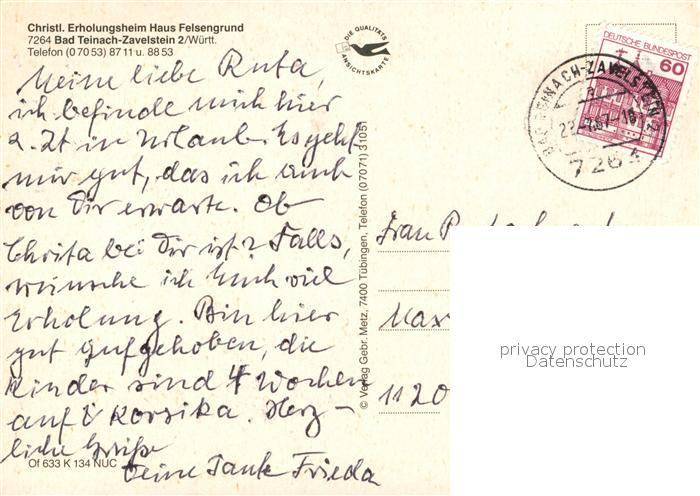 Christl. Erholungsheim Haus Felsengrund
7264 Bad Teinach-Zavelstein 2/Württ.
Telefon (0 70 53) 87 11 u. 88 53
DIE QUALITÄTS
ANSICHTSKARTE
DEUTSCHE BUNDESPOST
60
BAD TEINACH-ZAVELSTEIN 2
7264
Meine liebe Ruta,
ich befinde mich hier
z. Zt in Urlaub. Es geht
mir gut, das ich auch
von Dir erwarte. Ob
Christa bei Dir ist? Falls,
wünsche ich Euch viel
Erholung. Bin hier
gut aufgehoben, die
Kinder sind 4 Wochen
auf Korsika. Herz-
liche Grüße
Deine Tante Frieda
Of 633 K 134 NUC
© Verlag Gebr. Metz, 7400 Tübingen, Telefon (0 70 71) 3 10 51
Frau
Max
1120
privacy protection
Datenschutz